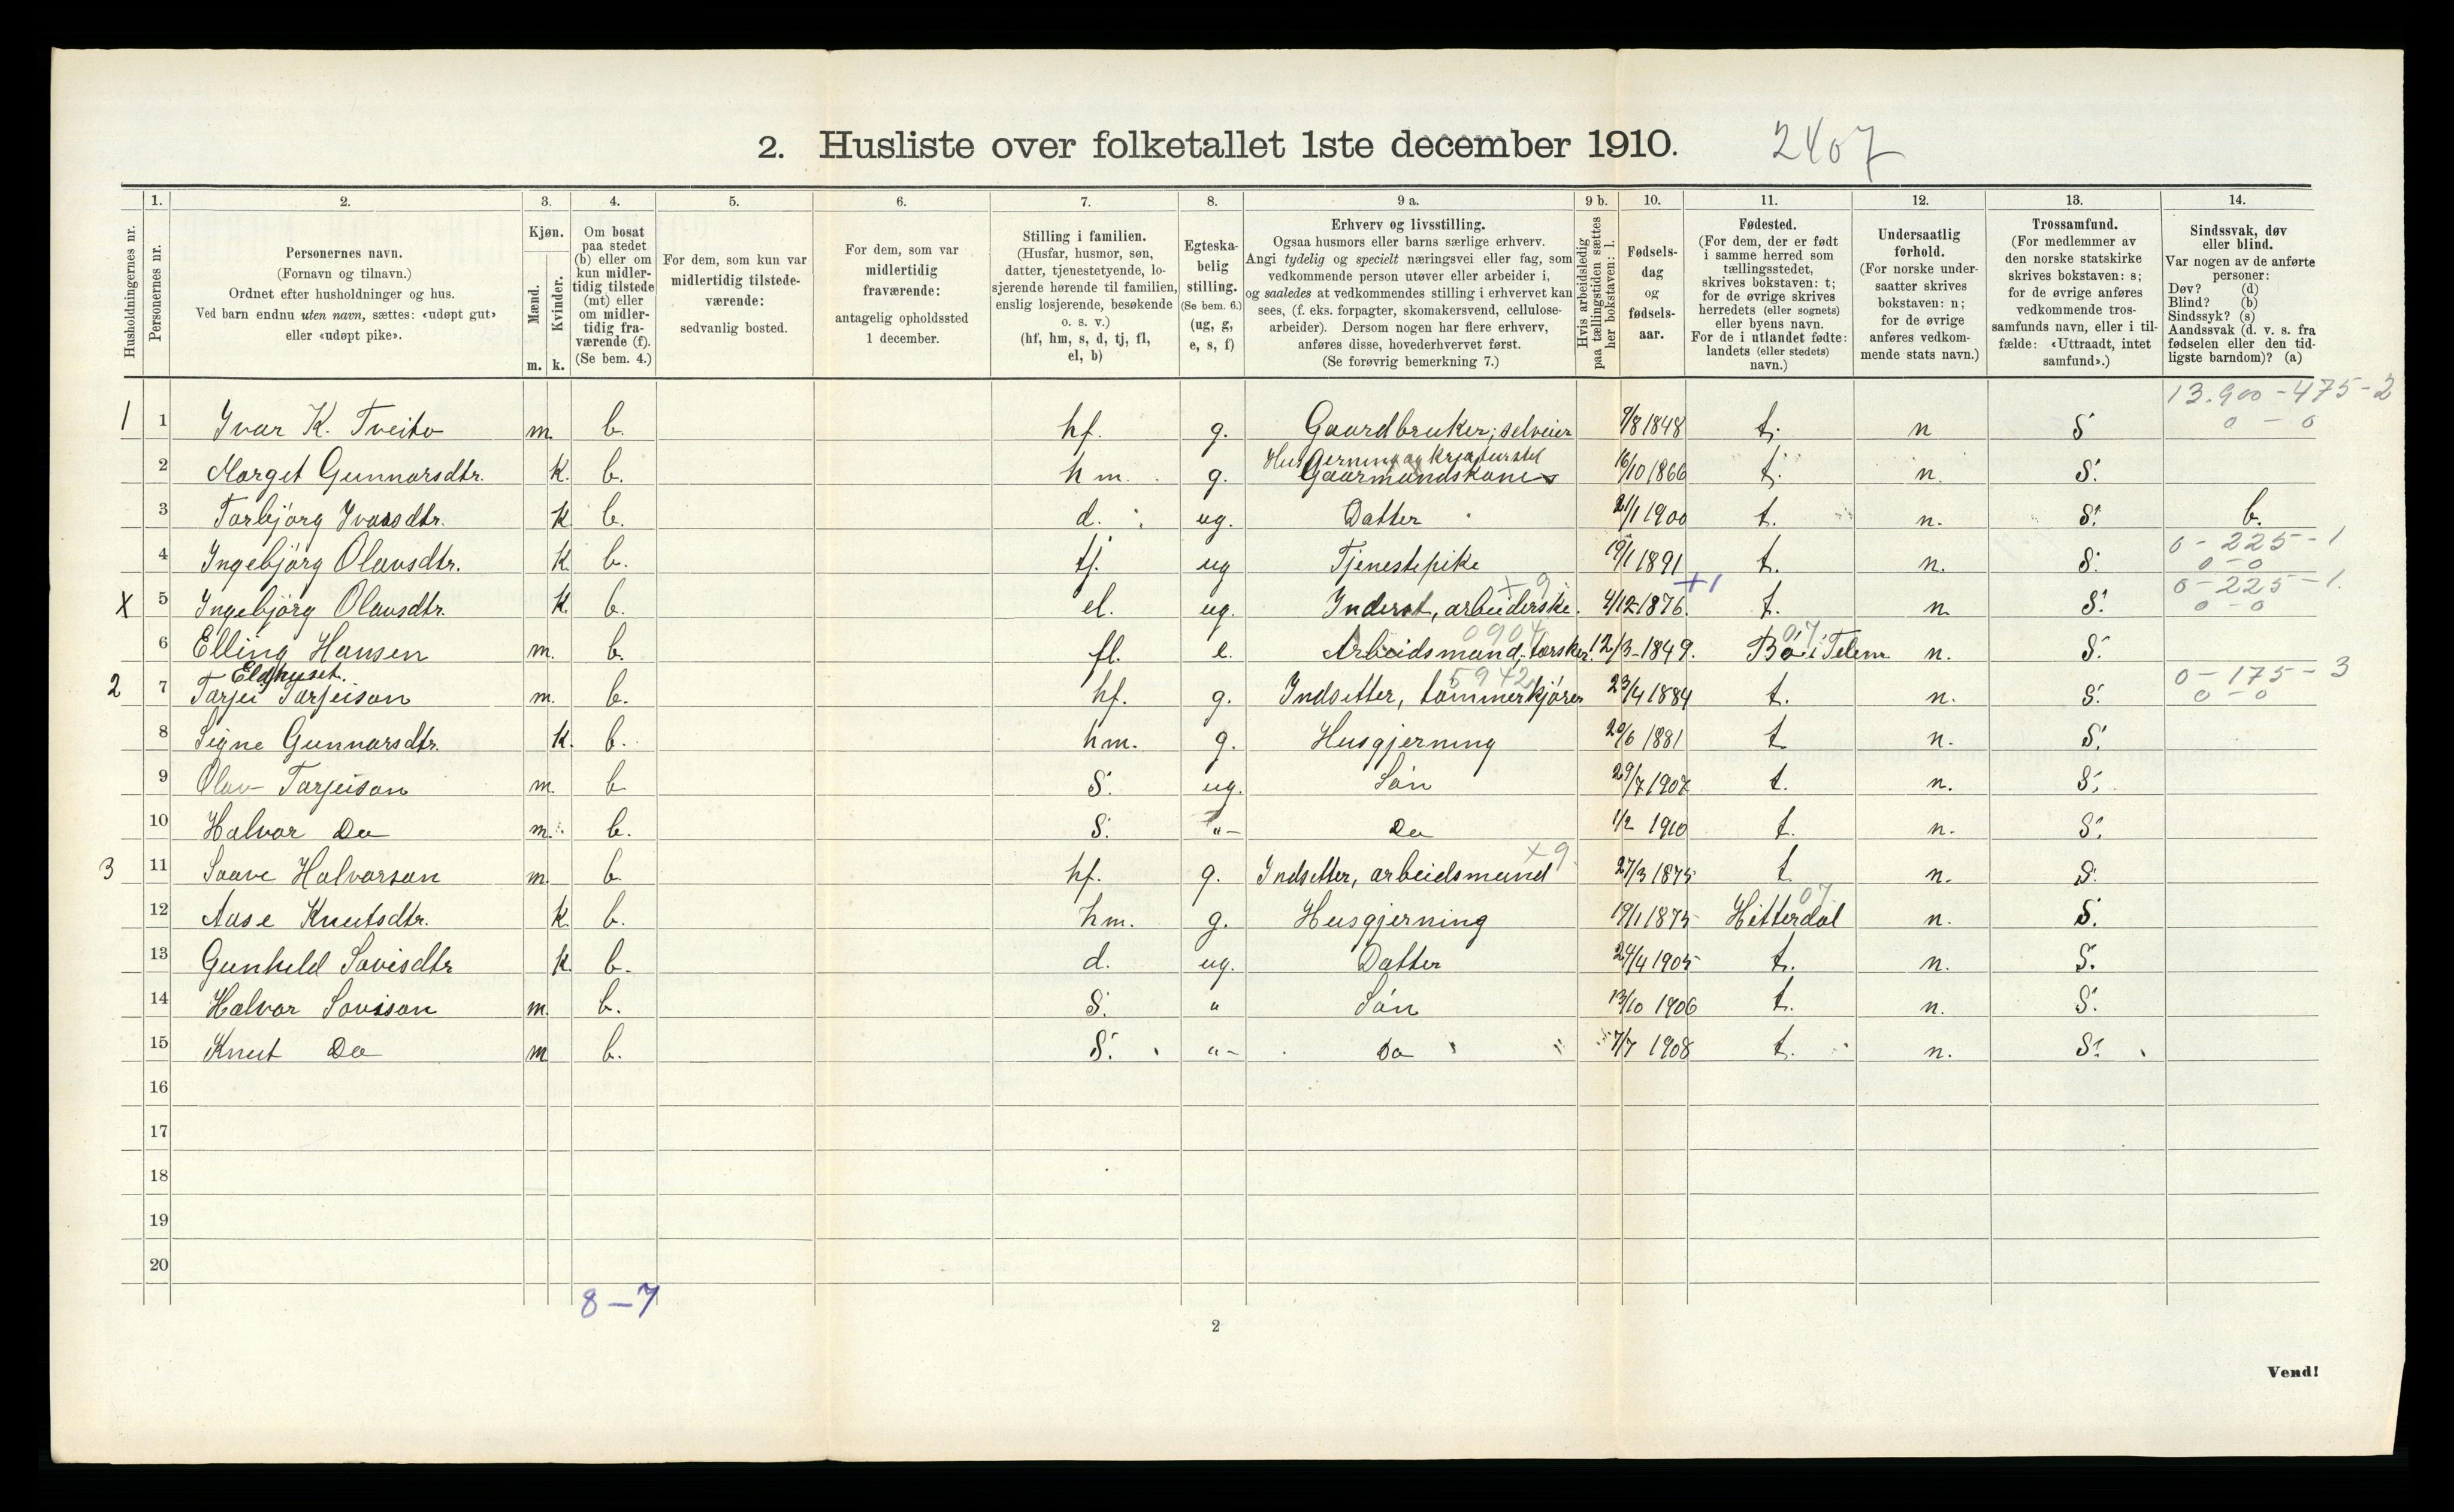 2. Husliste over folketallet 1ste december 1910. 2407
1. 2. 3. 4. 5. 6. 7. 8. 9 a. 9 b. 10. 11. 12. 13. 14.
Husholdningernes nr.
Personernes nr.
Personernes navn.
(Fornavn og tilnavn.)
Ordnet efter husholdninger og hus.
Ved barn endnu uten navn, sættes: «udøpt gut»
eller «udøpt pike».
Kjøn.
Mænd.
Kvinder.
m. k.
Om bosat
paa stedet
(b) eller om
kun midler-
tidig tilstede
(mt) eller
om midler-
tidig fra-
værende (f).
(Se bem. 4.)
For dem, som kun var
midlertidig tilstede-
værende:
sedvanlig bosted.
For dem, som var
midlertidig
fraværende:
antagelig opholdssted
1 december.
Stilling i familien.
(Husfar, husmor, søn,
datter, tjenestetyende, lo-
sjerende hørende til familien,
enslig losjerende, besøkende
o. s. v.)
(hf, hm, s, d, tj, fl,
el, b)
Egteska-
belig
stilling.
(Se bem. 6.)
(ug, g,
e, s, f)
Erhverv og livsstilling.
Ogsaa husmors eller barns særlige erhverv.
Angi tydelig og specielt næringsvei eller fag, som
vedkommende person utøver eller arbeider i,
og saaledes at vedkommendes stilling i erhvervet kan
sees, (f. eks. forpagter, skomakersvend, cellulose-
arbeider). Dersom nogen har flere erhverv,
anføres disse, hovederhvervet først.
(Se forøvrig bemerkning 7.)
Hvis arbeidsledig
paa tællingstiden sættes
her bokstaven: l.
Fødsels-
dag
og
fødsels-
aar.
Fødested.
(For dem, der er født
i samme herred som
tællingsstedet,
skrives bokstaven: t;
for de øvrige skrives
herredets (eller sognets)
eller byens navn.
For de i utlandet fødte:
landets (eller stedets)
navn.)
Undersaatlig
forhold.
(For norske under-
saatter skrives
bokstaven: n;
for de øvrige
anføres vedkom-
mende stats navn.)
Trossamfund.
(For medlemmer av
den norske statskirke
skrives bokstaven: s;
for de øvrige anføres
vedkommende tros-
samfunds navn, eller i til-
fælde: «Uttraadt, intet
samfund».)
Sindssvak, døv
eller blind.
Var nogen av de anførte
personer:
Døv? (d)
Blind? (b)
Sindssyk? (s)
Aandssvak (d. v. s. fra
fødselen eller den tid-
ligste barndom)? (a)
13.900 - 475 - 2
1 1 Ivar K. Tveito m. b. hf. g. Gaardbruker; selveier 9/8 1848 t. n S 0 - 0
Husgjerning og kreaturstel
2 Marget Gunnarsdtr. k. b. hm. g. Gaarmandskone 16/10 1866 t. n. S.
3 Torbjørg Ivarsdtr. k b. d. ug. Datter 21/1 1900 t. n. S. b.
0 - 225 - 1
4 Ingebjørg Olavsdtr. k. b. tj. ug Tjenestepike 19/1 1891 t. n. S. 0 - 0
x 9 +1 0 - 225 - 1.
X 5 Ingebjørg Olavsdtr. k. b. el. ug. Inderst, arbeiderske. 4/12 1876. t. n S. 0 - 0
0904 07
6 Elling Hansen m. b. fl. e. Arbeidsmand, tørsker. 12/3-1849. Bø i Telem n. S.
Eldhuset. 5942 0 - 175 - 3
2 7 Tarjei Tarjeison m. b. hf. g. Indsitter, tømmerkjører 23/4 1884 t. n. S. 0 - 0
8 Signe Gunnarsdtr. k. b. hm. g. Husgjerning 20/6 1881 t n. S.
9 Olav Tarjeison m. b S. ug. Søn 29/7 1907 t. n. S.
10 Halvor Do m. b. S. "- Do 1/2 1910 t. n. S.
x 9
3 11 Saave Halvorson m. b. hf. g. Indsitter, arbeidsmand 27/3 1875 t n. S.
07
12 Aase Knutsdtr. k. b. hm. g. Husgjerning 19/1 1875 Hitterdal n. S.
13 Gunhild Sovisdtr k. b. d. ug. Datter 24/4 1905 t. n. S.
14 Halvor Sovison m. b. S. " Søn 13/10 1906 t. n. S.
15 Knut Do m b. S. "- Do 7/7 1908 t. n. S.
16
17
18
19
20
8 - 7
2
Vend!